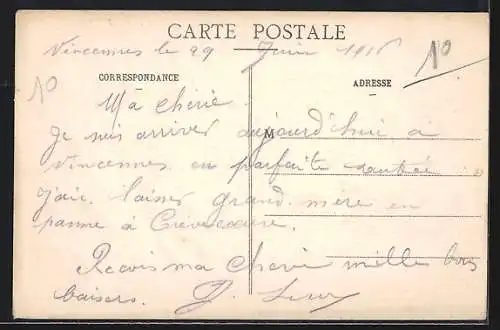 CARTE POSTALE
Vincennes le 29 Juin 1916
10
CORRESPONDANCE
ADRESSE
10
Ma chérie
Je suis arriver aujourd'hui à
M
Vincennes en parfaite santée
J'ai laisser grand mère en
panne à Crèvecoeur
Recois ma cherie mille bons
baisers.